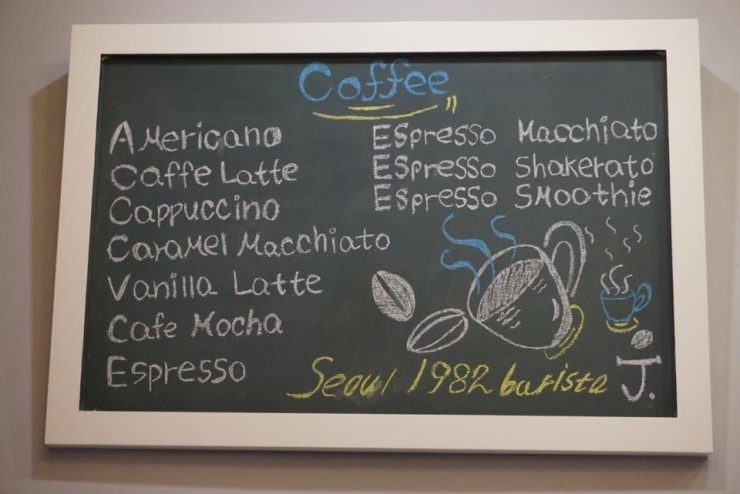 Coffee
AMericano
Caffe Latte
Cappuccino
CaraMel Macchiato
Vanilla Latte
Cafe Mocha
Espresso
ESpresso Macchiato
ESpresso Shakerato
ESpresso SMoothie
Seoul 1982 barista J.